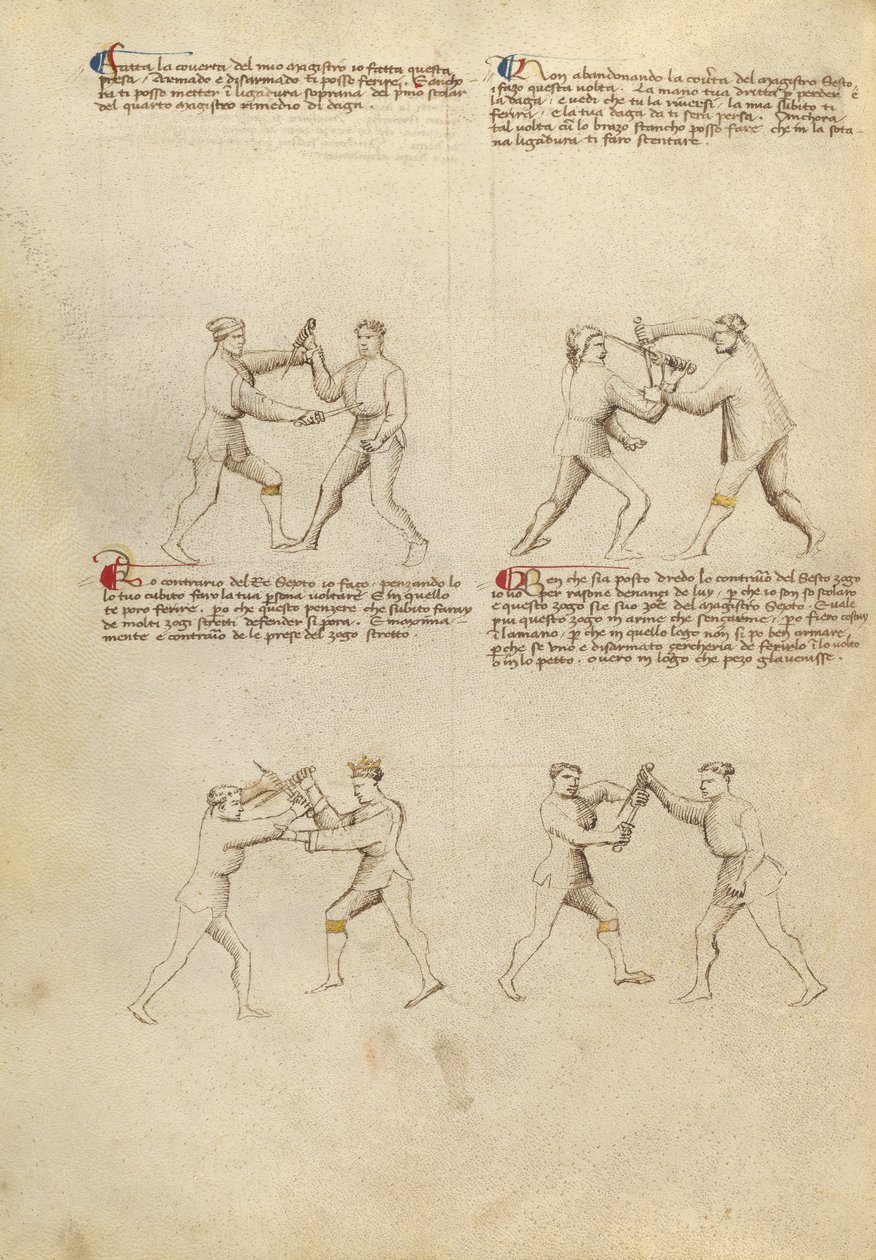 Fatta la coverta del mio magistro io fatta questa
presa / Armado e disarmado ti posso ferire. E ancho-
ra ti posso metter i ligadura soprana del p'mo scolar
del quarto magistro rimedio di daga.
Non abandonando la cov'ta del magistro Sesto
i fazo questa volta. La mano tua dritta p perder è
la daga / e vedi che tu la riversi / la mia subito ti
ferira / e la tua daga da ti sera persa. Anchora
tal volta cu lo brazo stancho posso fare che in la sota-
na ligadura ti faro stentare.
Lo contrario del Re Sesto io faço / penzando lo
lo tuo cubito faro la tua p'sona voltare E in quello
te poro ferire. p o che questo penzere che subito faray
de molti zogi stretti defender si pora. E maxima-
mente e contrario de le prese del zogo stretto.
Ben che sia posto dredo lo contrario del Sesto zogo
io vo per rasone denançi de luy / p che io son so scolaro
e questo zogo sie suo zoe del magistro Sesto. E vale
piu questo zogo in arme che sença arme / p o fiero costuy
i la mano / p che in quello logo non si po ben armare
p che se uno e disarmato çercheria de ferirlo i lo volto
o in lo petto. overo in logo che pezo gl avenisse.